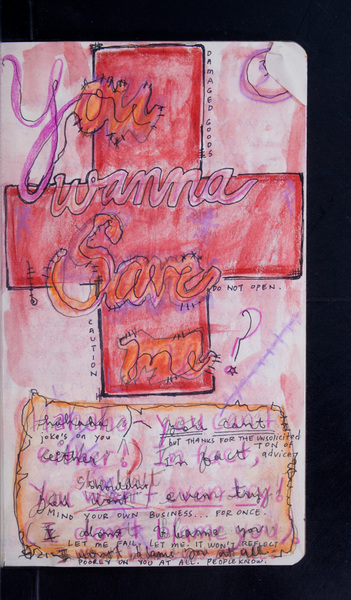 You
DAMAGED GOODS
wanna
Save
DO NOT OPEN.
CAUTION
me?
you can't
joke's on you
BUT THANKS FOR THE UNSOLICITED
TON OF
advice
either! In fact,
shouldn't
you won't even try!
MIND YOUR OWN BUSINESS... FOR ONCE.
I don't blame you,
LET ME FAIL, LET ME. IT WON'T REFLECT
I won't blame you at all.
POORLY ON YOU AT ALL. PEOPLE KNOW.